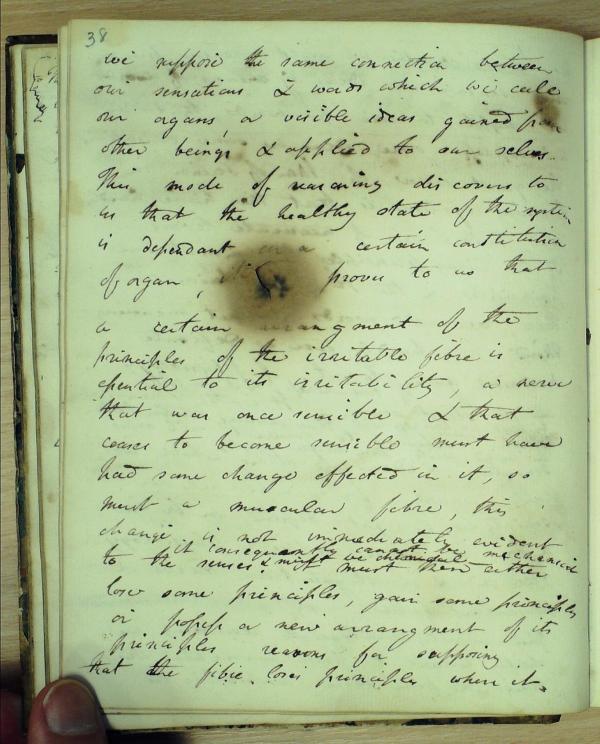 38
we suppose the same connection between
our sensations & words which we call
our organs, or visible ideas gained from
other beings & applied to our selves.
This mode of reasoning discovers to
us that the healthy state of the system
is dependant on a certain constitution
of organ, proves to us that
a certain arrangment of the
principles of the irritable fibre is
essential to its irritability, a nerve
that was once sensible & that
ceases to become sensible must have
had some change effected in it, so
must a muscular fibre, this
change is not immediately evident
it consequently cannot be mechanical
to the senses & must be chemical must then either
lose some principles, gain some principles
or possess a new arrangment of its
principles reasons for supposing
that the fibre loses principles when it